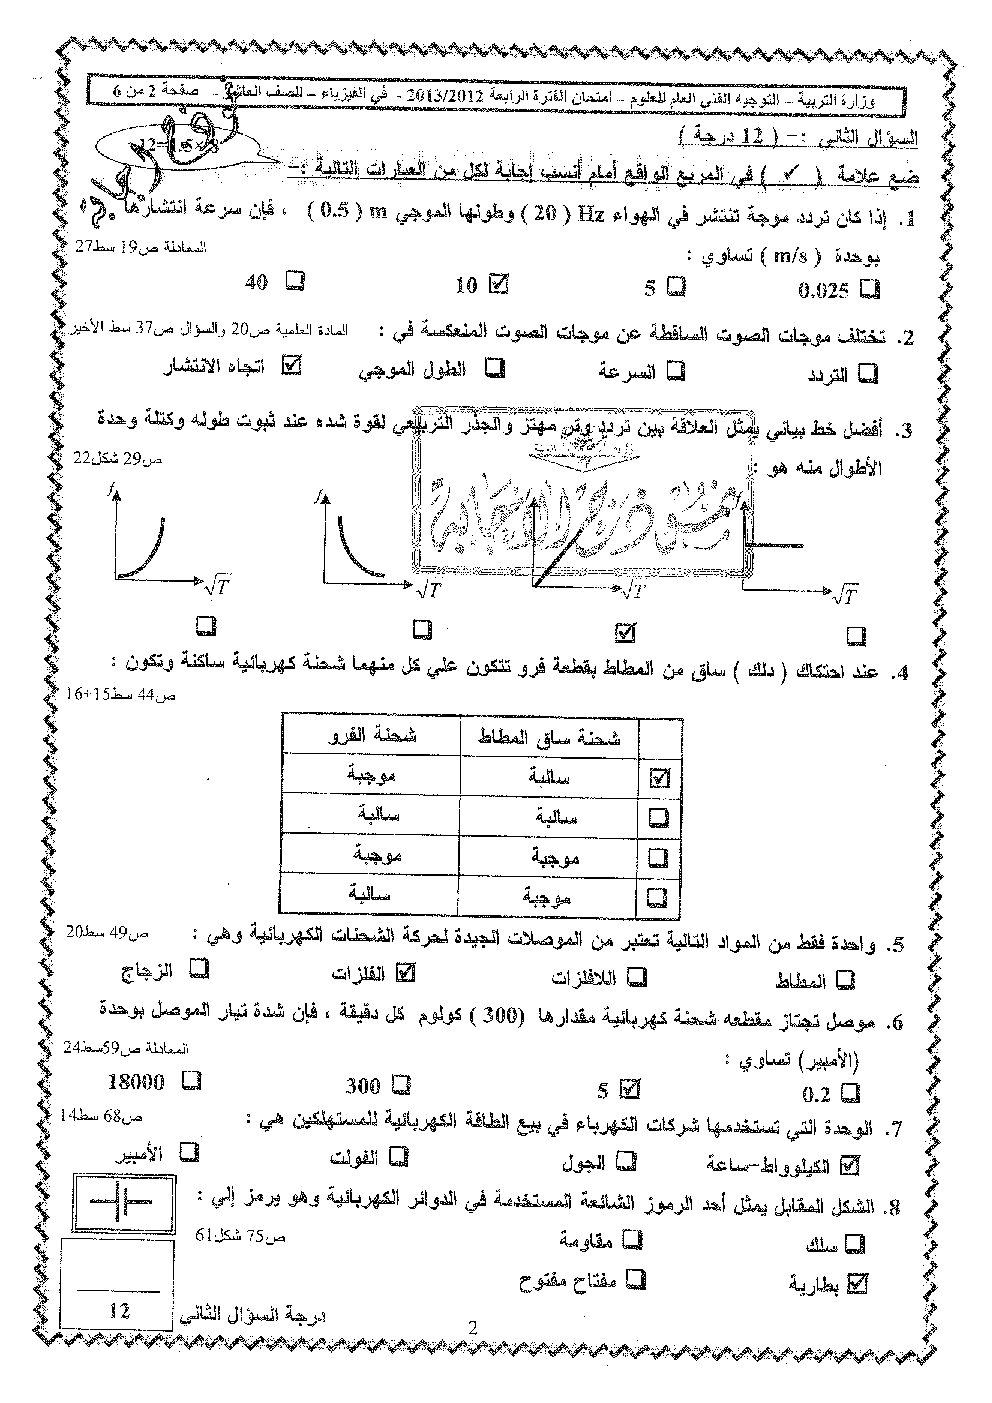 وزارة التربية – التوجيه الفني العام للعلوم – امتحان الفترة الرابعة 2013/2012 - في الفيزياء – للصف العاشر - صفحة 2 من 6
السؤال الثاني :– ( 12 درجة )
12=1.5×8
ضع علامة ( ✓ ) في المربع الواقع أمام أنسب إجابة لكل من العبارات التالية :–
1. إذا كان تردد موجة تنتشر في الهواء Hz ( 20 ) وطولها الموجي m ( 0.5 ) ، فإن سرعة انتشارها
بوحدة ( m/s ) تساوي : المعادلة ص19 سط27
☐ 0.025 ☐ 5 ☑ 10 ☐ 40
2. تختلف موجات الصوت الساقطة عن موجات الصوت المنعكسة في : المادة العلمية ص20 والسؤال ص37 سط الأخير
☐ التردد ☐ السرعة ☐ الطول الموجي ☑ اتجاه الانتشار
3. أفضل خط بياني يمثل العلاقة بين تردد وتر مهتز والجذر التربيعي لقوة شده عند ثبوت طوله وكتلة وحدة
الأطوال منه هو : ص29 شكل22
نموذج الإجابة
f f
√T √T √T √T
☐ ☑ ☐ ☐
4. عند احتكاك ( دلك ) ساق من المطاط بقطعة فرو تتكون علي كل منهما شحنة كهربائية ساكنة وتكون :
ص44 سط15+16
شحنة ساق المطاط شحنة الفرو
☑ سالبة موجبة
☐ سالبة سالبة
☐ موجبة موجبة
☐ موجبة سالبة
5. واحدة فقط من المواد التالية تعتبر من الموصلات الجيدة لحركة الشحنات الكهربائية وهي : ص49 سط20
☐ المطاط ☐ اللافلزات ☑ الفلزات ☐ الزجاج
6. موصل تجتاز مقطعه شحنة كهربائية مقدارها (300 ) كولوم كل دقيقة ، فإن شدة تيار الموصل بوحدة
(الأمبير) تساوي : المعادلة ص59سط24
☐ 0.2 ☑ 5 ☐ 300 ☐ 18000
7. الوحدة التي تستخدمها شركات الكهرباء في بيع الطاقة الكهربائية للمستهلكين هي : ص68 سط14
☑ الكيلوواط-ساعة ☐ الجول ☐ الفولت ☐ الأمبير
8. الشكل المقابل يمثل أحد الرموز الشائعة المستخدمة في الدوائر الكهربائية وهو يرمز إلي :
☐ سلك ☐ مقاومة ص75 شكل61
☑ بطارية ☐ مفتاح مفتوح
درجة السؤال الثاني 12
2